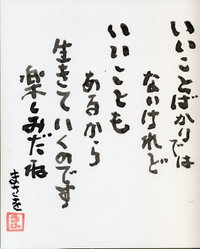 いいことばかりでは
ないけれど
いいことも
あるから
生きていくのです
楽しみだね
まさを